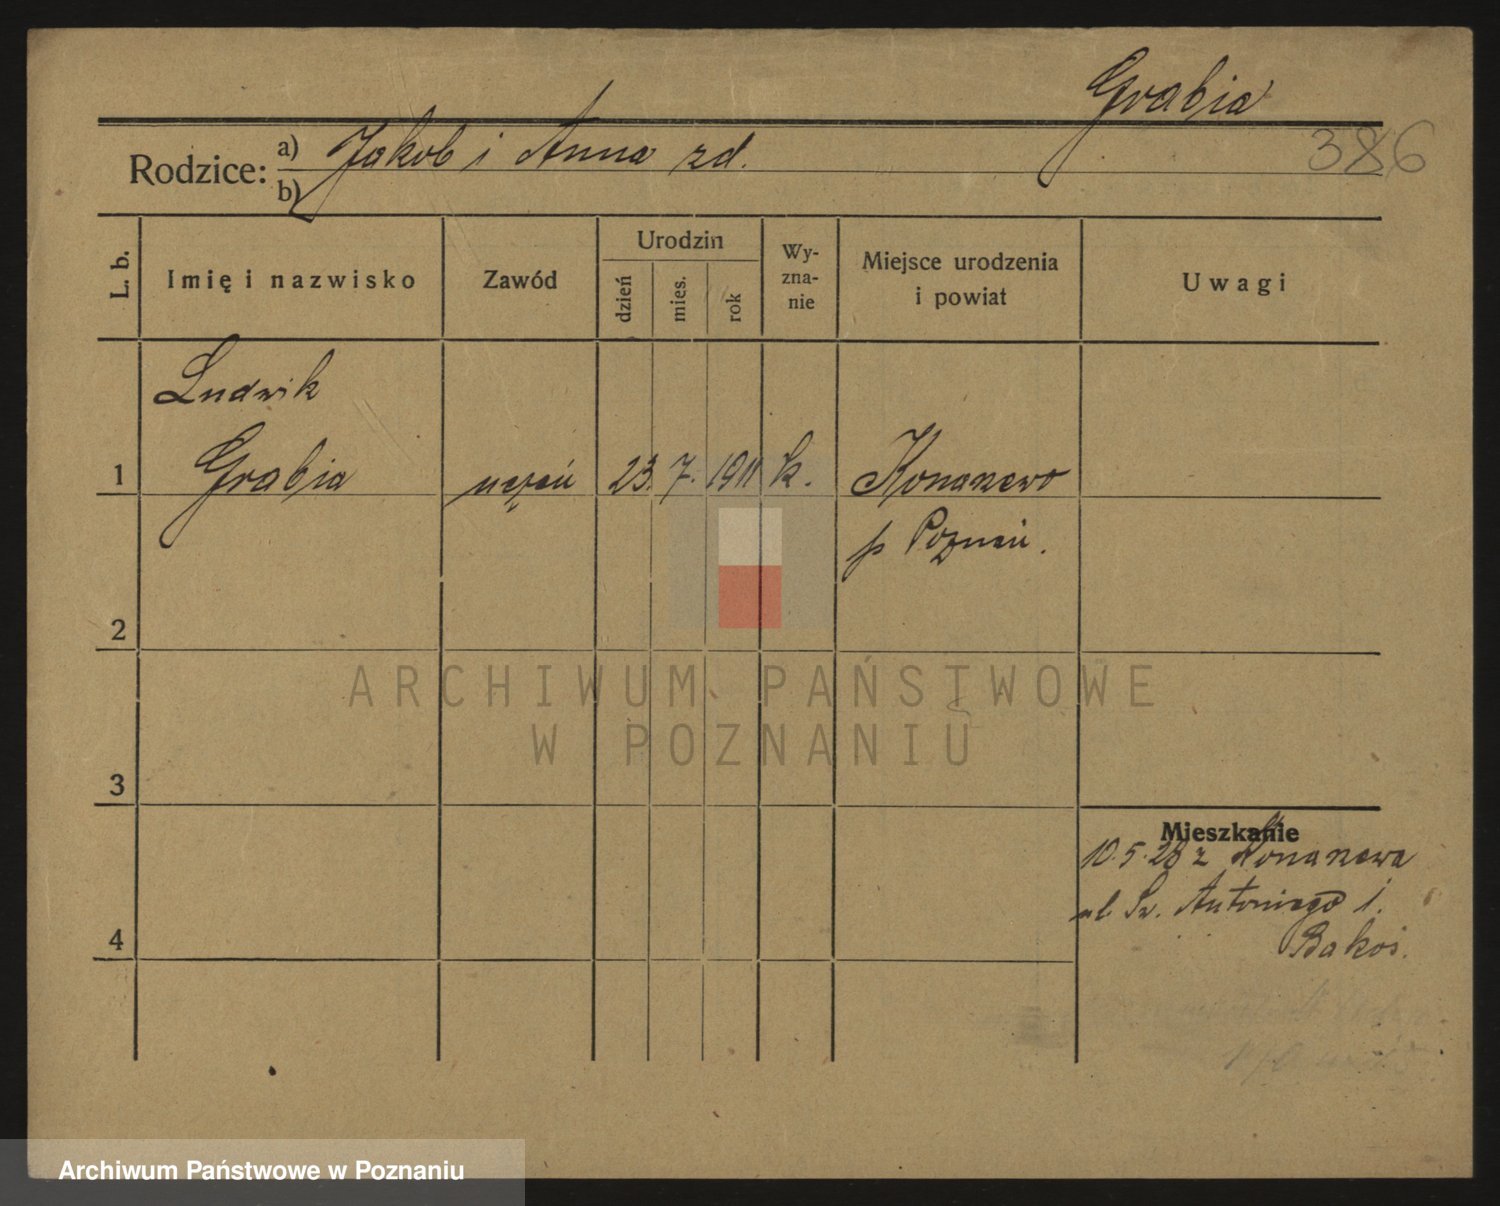 Grabia
386
Rodzice: a) Jakob i Anna zd.
b)
L. b.
Imię i nazwisko
Zawód
Urodzin
dzień
mies.
rok
Wy-
zna-
nie
Miejsce urodzenia
i powiat
Uwagi
Ludwik
1 Grabia uczeń 23. 7. 1911 k. Konarzewo
p Poznań.
2
ARCHIWUM PAŃSTWOWE
W POZNANIU
3
Mieszkanie
10.5.28 z Konarzewa
ul Św. Antoniego 1.
4
Bakoś.
Archiwum Państwowe w Poznaniu